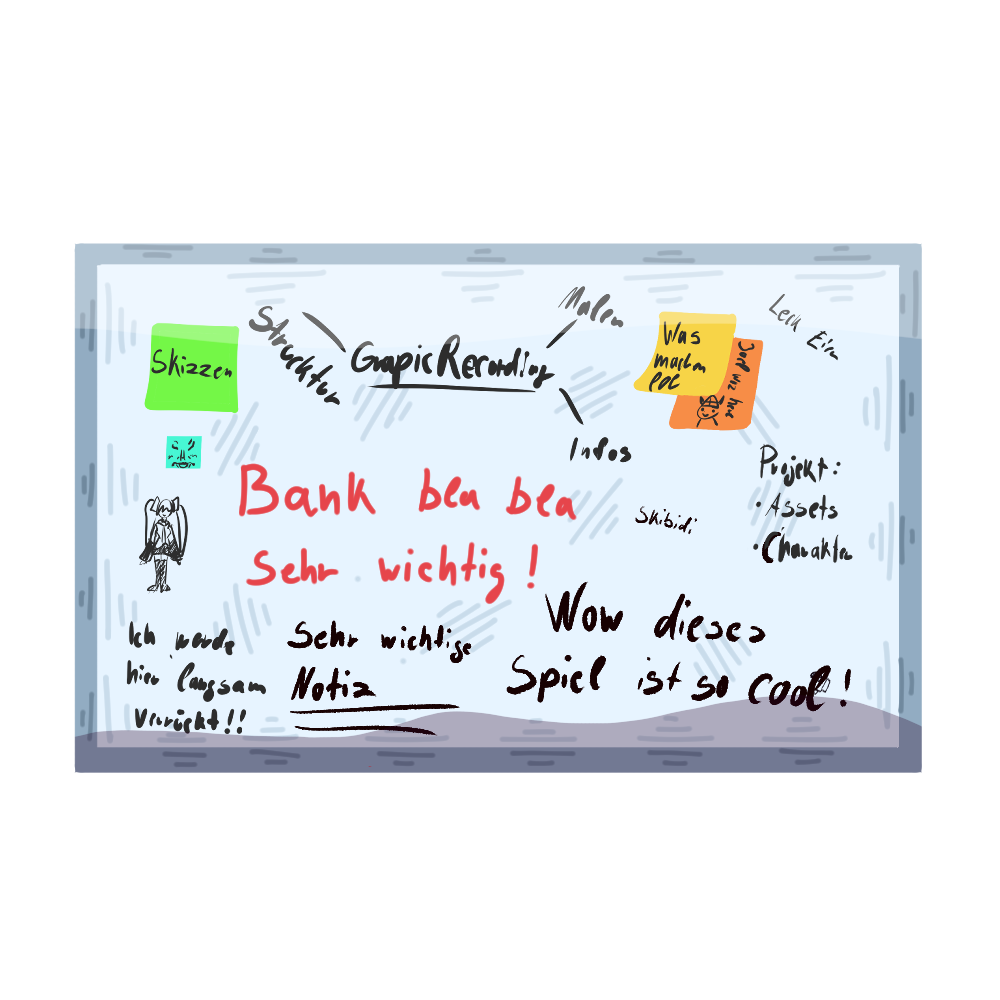 Strucktur
GrapicRecording
Malen
Infos
Skizzen
Was
machen
Bank bla bla
Sehr wichtig!
Skibidi
Projekt:
• Assets
• Charakter
Ich werde
hier langsam
verrückt!!
Sehr wichtige
Notiz
Wow dieses
Spiel ist so cool!